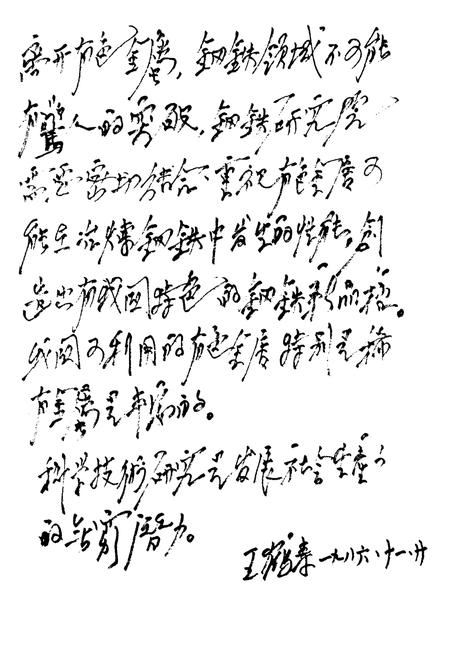 离开有色金属，钢铁领域不可能
有惊人的突破，钢铁研究院
密切结合、重视有色金属可
能在冶炼钢铁中发生的性能，创
造出有我国特色的钢铁新品种。
我国可利用的有色金属特别是稀
有金属是丰富的。
科学技术研究是发展社会生产力
的无穷潜力。
王鹤寿 一九八六、十一、廿